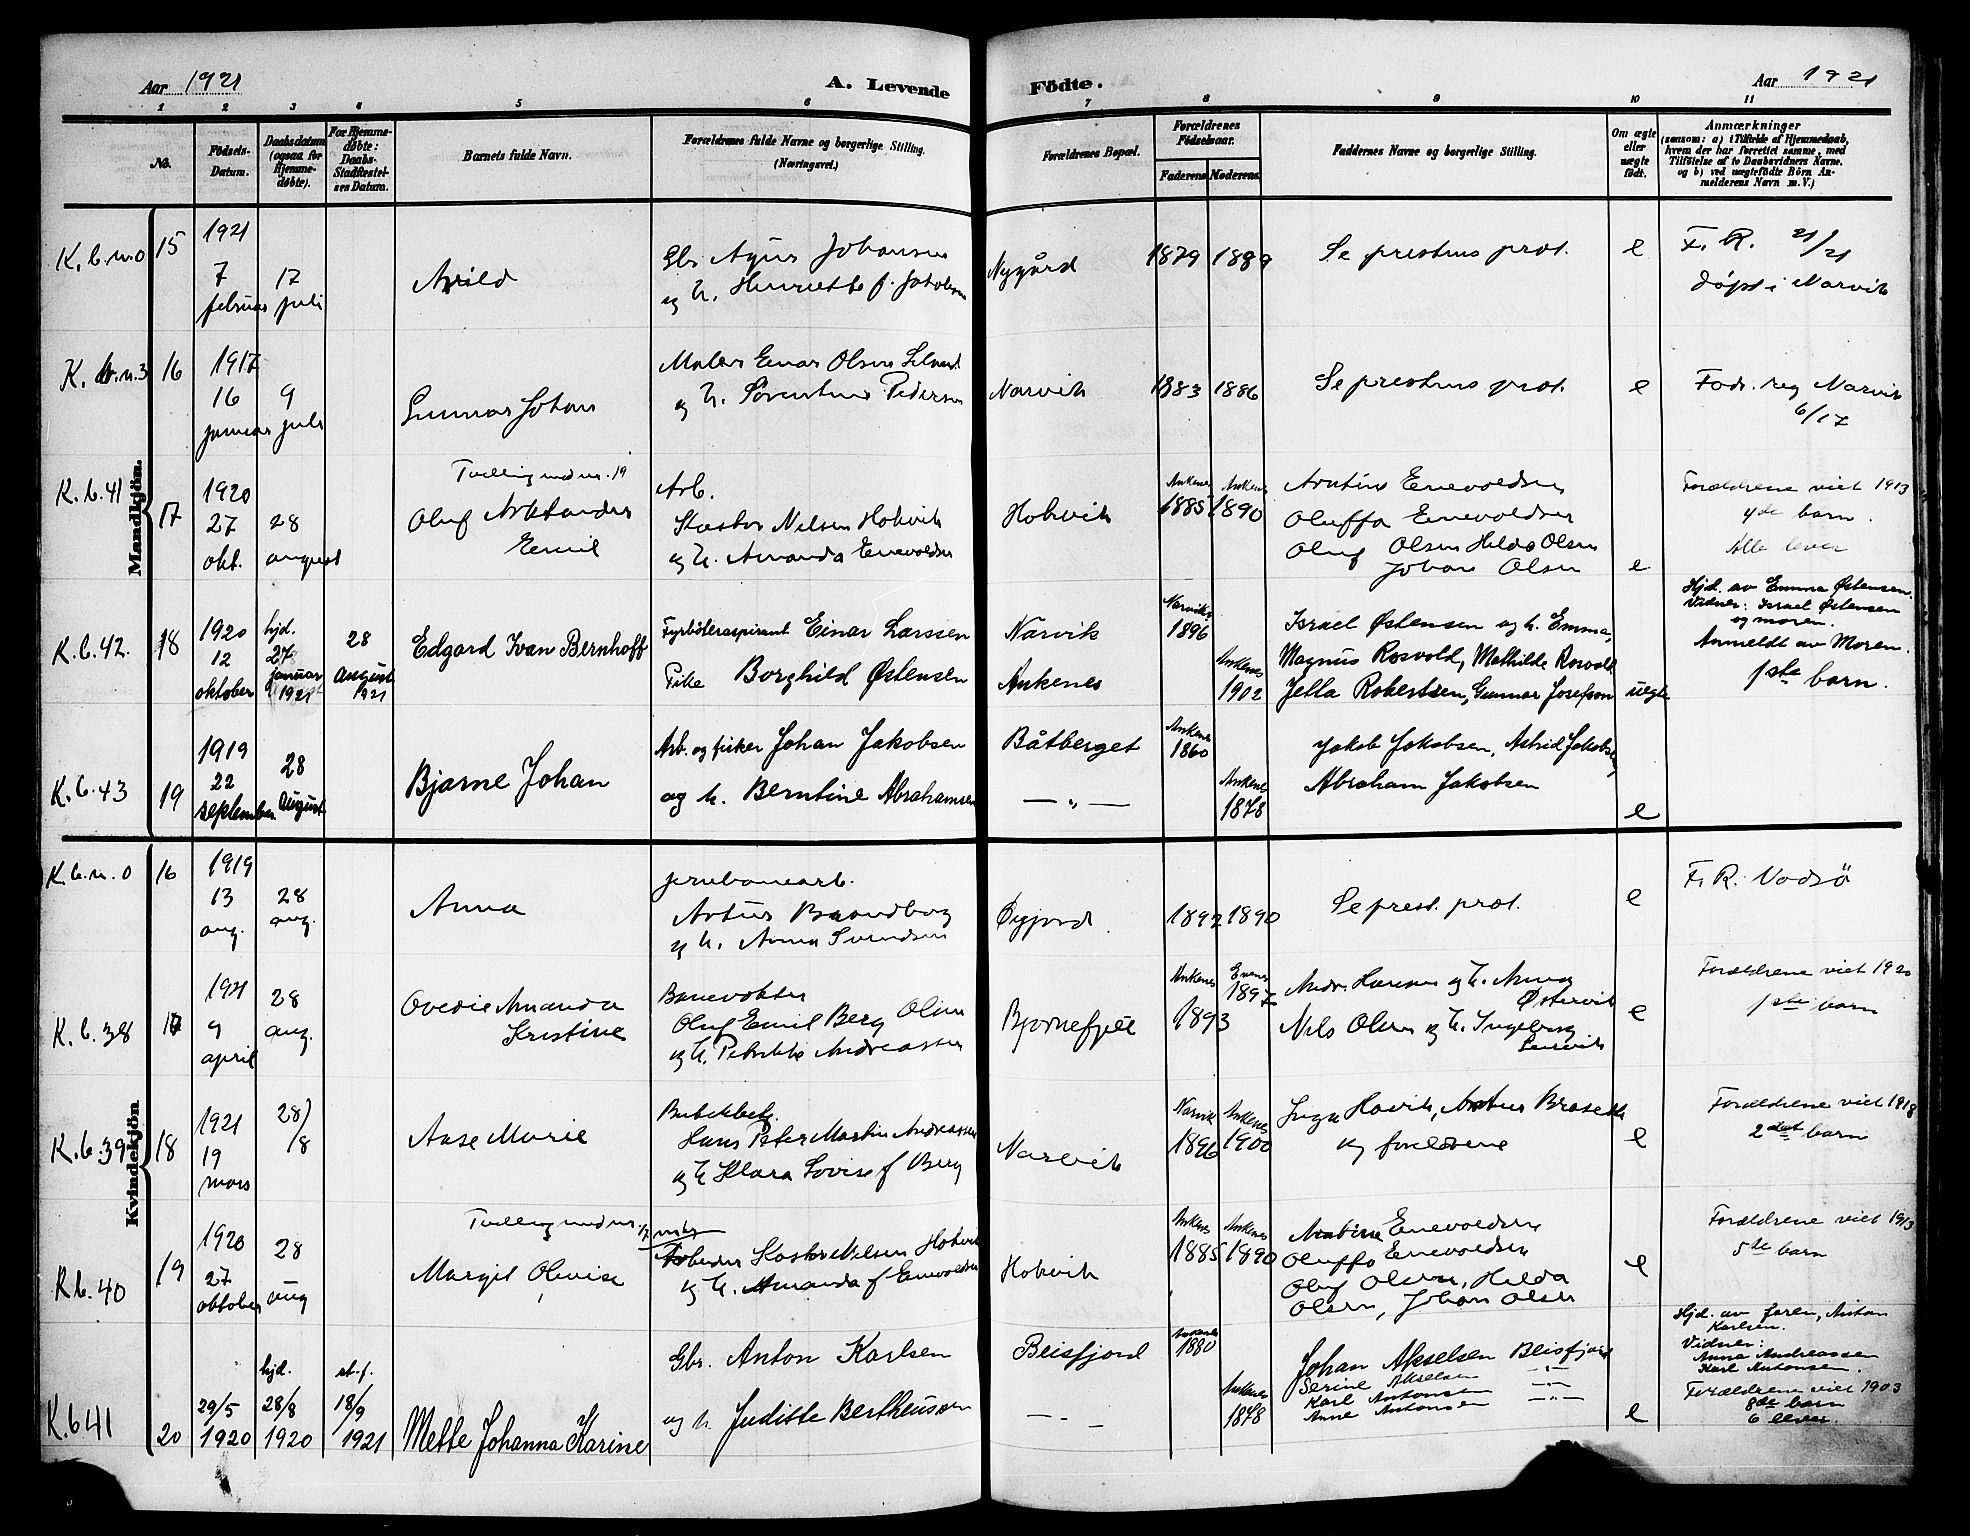 Aar 1921
A. Levende Födte.
Aar 1921
1 2 3 4 5 6 7 8 9 10 11
No.
Fødsels-Datum.
Daabsdatum (ogsaa for Hjemme-døbte).
For Hjemme-døbte: Daabs-Stadfæstel-ses Datum.
Barnets fulde Navn.
Forældrenes fulde Navne og borgerlige Stilling. (Næringsvei.)
Forældrenes Bopæl.
Forældrenes Fødselsaar.
Faderens Moderens
Faddernes Navne og borgerlige Stilling.
Om ægte eller uægte født.
Anmærkninger
(saasom: a) i Tilfælde af Hjemmedaab, hvem der har forrettet samme, med Tilføielse af to Daabsvidners Navne. og b) ved uægtefødte Børn An-melderens Navn m. V.)
Mandkjön.
K.b.n.0 15
1921 7 februar
17 juli
Arild
Gbr. Johansen
og h. Henriette f. Jakobsen
Nygård
1879 1889
Se prestens prot.
e
F. R. 21/21
døpt i Narvik
K. b.n.3 16
1917 16 januar
9 juli
Gunnar Johan
Maler Einar Olsen
og h. Pedersen
Narvik
1883 1886
Se prestens prot.
e
Føds. reg Narvik
6/17
K.b.41 17
1920 27 okt.
28 august
Tvilling med nr. 19
Oluf
Emil
Arb.
Nilsen Hokvik
og h. Amanda Enevoldsen
Hokvik
Ankenes 1885 Ankenes 1890
Enevoldsen
Oluffa Enevoldsen
Oluf Olsen Hilda Olsen
Johan Olsen
e
Forældrene viet 1913
4de barn.
Alle lever
K.b.42. 18
1920 12 oktober
hjd. 27 januar 1921
28 August 1921
Edgard Ivan Bernhoff
Fyrbøteraspirant Einar Larssen
Pike Borghild Østensen
Narvik
Ankenes
Narvik 1896
Ankenes 1902
Israel Østensen og h. Emma,
Magnus Rosvold, Mathilde Rosvold
Jella Robertsen, Gunnar Josefson
uegte
Hjd. av Emma Østensen.
Vidner: Israel Østensen
og moren.
Anmeldt av Moren.
1ste barn.
K.b.43 19
1919 22 september
28 August
Bjarne Johan
Arb. og fisker Johan Jakobsen
og h. Berntine Abrahamsen
Båtberget
— " —
Ankenes 1860
Ankenes 1878
Jakob Jakobsen, Astrid Jakobsen,
Abraham Jakobsen
e
Kvindekjön
K.b.n.0 16
1919 13 aug.
28 aug.
Anna
jernbanearb.
og h. Anna Svendsen
Øyjord
1892 1890
Se prest. prot.
e
F. R. Vadsö
K.b.38 17
1921 9 april
28 aug.
Ovedie Amanda
Kristine
Banevokter
Oluf Emil Berg Olsen
og h. Andreassen
Bjørnefjell
Ankenes 1893 Evenes 1897
Andr. Larsen og h. Anna
Østervik
Nils Olsen og h. Ingeborg
e
Forældrene viet 1920
1ste barn
K.b.39 18
1921 19 mars
28/8
Aase Marie
Hans Peter Martin Andreassen
og h Klara Lovise f Berg
Narvik
Narvik 1896 Ankenes 1900
Inga Havik,
og forældrene
e
Forældrene viet 1918
2det barn
K.b.40 19
1920 27 oktober
28 aug
Tvilling med nr. 17
Margit Olevise
Arbeider Nilsen Hokvik
og h. Amanda f Enevoldsen
Hokvik
Ankenes 1885 Ankenes 1890
Enevoldsen
Oluffa Enevoldsen
Oluf Olsen, Hilda
Olsen, Johan Olsen
e
Forældrene viet 1913
5te barn
K.b41 20
29/5 1920
hjd. 28/8 1920
st.f. 18/9 1921
Mette Johanna Karine
Gbr. Anton Karlsen
og h. Juditte Bertheussen
Beisfjord
— " —
Ankenes 1880
Ankenes 1878
Johan Akselsen Beisfjord
Serine Akselsen — " —
Karl Antonsen — " —
Anne Antonsen — " —
e
Hjd. av faren, Anton
Karlsen.
Vidner:
Anna Andreassen
Karl Antonsen.
Forældrene viet 1903
8de barn
6 lever.